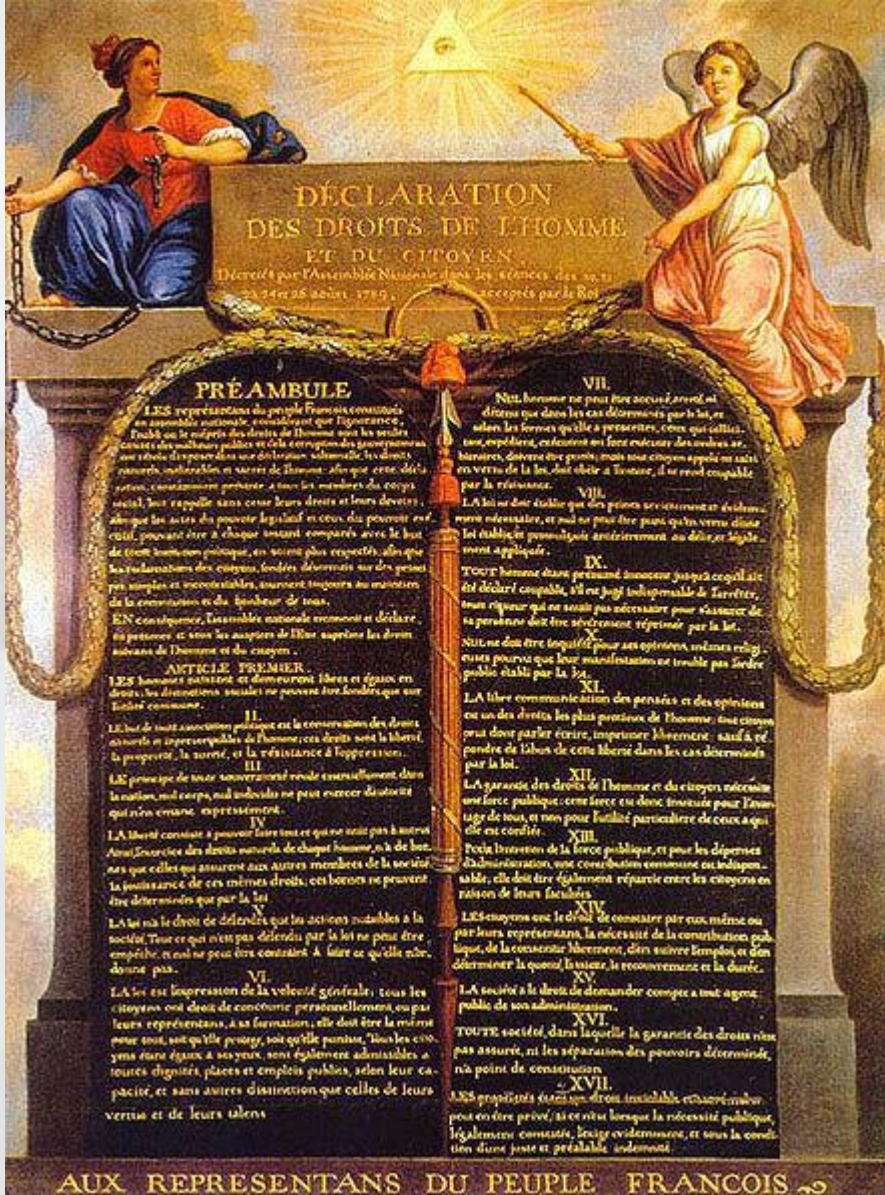 DÉCLARATION
DES DROITS DE L'HOMME
ET DU CITOYEN,
Décretés par l'Assemblée Nationale dans les séances des 20, 21
23, 24 et 26 août 1789, acceptés par le Roi
PRÉAMBULE
LES représentans du peuple François, constitués
en assemblée nationale, considérant que l'ignorance,
l'oubli ou le mépris des droits de l'homme sont les seules
causes des malheurs publics et de la corruption des gouvernemens
ont résolu d'exposer dans une déclaration solemnelle, les droits
naturels, inaliénables et sacrés de l'homme: afin que cette décla
ration, constamment présente à tous les membres du corps
social, leur rappelle sans cesse leurs droits et leurs devoirs,
afin que les actes du pouvoir législatif et ceux du pouvoir exé
cutif, pouvant être à chaque instant comparés avec le but
de toute institution politique, en soient plus respectés; afin que
les réclamations des citoyens, fondées désormais sur des principes
simples et incontestables, tournent toujours au maintien
de la constitution et du bonheur de tous.
EN conséquence, l'assemblée nationale reconnoit et déclare,
en présence et sous les auspices de l'Etre suprême les droits
suivans de l'homme et du citoyen.
ARTICLE PREMIER.
LES hommes naissent et demeurent libres et égaux en
droits; les distinctions sociales ne peuvent être fondées que sur
l'utilité commune.
II.
LE but de toute association politique est la conservation des droits
naturels et imprescriptibles de l'homme; ces droits sont la liberté,
la propriété, la sureté, et la résistance à l'oppression.
III
LE principe de toute souveraineté réside essentiellement dans
la nation, nul corps, nul individu ne peut exercer d'autorité
qui n'en émane expressément.
IV
LA liberté consiste à pouvoir faire tout ce qui ne nuit pas à autrui
Ainsi, l'exercice des droits naturels de chaque homme, n'a de bor
nes que celles qui assurent aux autres membres de la société
la jouissance de ces mêmes droits; ces bornes ne peuvent
être déterminées que par la loi
V.
LA loi n'a le droit de défendre que les actions nuisibles à la
société. Tout ce qui n'est pas défendu par la loi ne peut être
empêché, et nul ne peut être contraint à faire ce qu'elle n'or-
donne pas.
VI.
LA loi est l'expression de la volonté générale; tous les
citoyens ont droit de concourir personnellement, ou par
leurs représentans, à sa formation; elle doit être la même
pour tous, soit qu'elle protege, soit qu'elle punisse, Tous les cito
yens étant égaux à ses yeux, sont également admissibles à
toutes dignités, places et emplois publics, selon leur ca
pacité, et sans autres distinction que celles de leurs
vertus et de leurs talens
VII.
NUL homme ne peut être accusé, arreté, ni
détenu que dans les cas déterminés par la loi, et
selon les formes qu'elle a prescrites, ceux qui sollici
tent, expédient, exécutent ou font exécuter des ordres ar-
bitraires, doivent être punis; mais tout citoyen appelé ou saisi
en vertu de la loi, doit obéir à l'instant, il se rend coupable
par la résistance.
VIII.
LA loi ne doit établir que des peines strictement et évidem
ment nécessaire, et nul ne peut être puni qu'en vertu d'une
loi établie, et promulguée antérieurement au délit, et légale
ment appliquée.
IX.
TOUT homme étant présumé innocent jusqu'à ce qu'il ait
été déclaré coupable, s'il est jugé indispensable de l'arrêter,
toute rigueur qui ne serait pas nécessaire pour s'assurer de
sa personne doit être sévèrement réprimée par la loi.
X.
NUL ne doit être inquiété pour ses opinions, mêmes religi
euses pourvu que leur manifestation ne trouble pas l'ordre
public établi par la loi.
XI.
LA libre communication des pensées et des opinions
est un des droits les plus précieux de l'homme; tout citoyen
peut donc parler écrire, imprimer librement: sauf à ré
pondre de l'abus de cette liberté dans les cas déterminés
par la loi.
XII.
LA garantie des droits de l'homme et du citoyen nécessite
une force publique: cette force est donc instituée pour l'avan
tage de tous, et non pour l'utilité particuliere de ceux a qui
elle est confiée.
XIII.
Pour l'entretien de la force publique, et pour les dépenses
d'administration, une contribution commune est indispen-
sable, elle doit être également répartie entre les citoyens en
raison de leurs facultées
XIV.
LES citoyens ont le droit de constater par eux même ou
par leurs représentans, la nécessité de la contribution pub
lique, de la consentir librement, d'en suivre l'emploi, et d'en
déterminer la quotité, l'assiette, le recouvrement et la durée.
XV.
LA société a le droit de demander compte a tout agent
public de son administration.
XVI.
TOUTE société, dans laquelle la garantie des droits n'est
pas assurée, ni les séparation des pouvoirs déterminée,
n'a point de constitution
XVII.
LES propriétés étant un droit inviolable et sacré, nul ne
peut en être privé, si ce n'est lorsque la nécessité publique,
légalement constatée, l'exige evidemment, et sous la condi
tion d'une juste et préalable indemnité.
AUX REPRESENTANS DU PEUPLE FRANCOIS